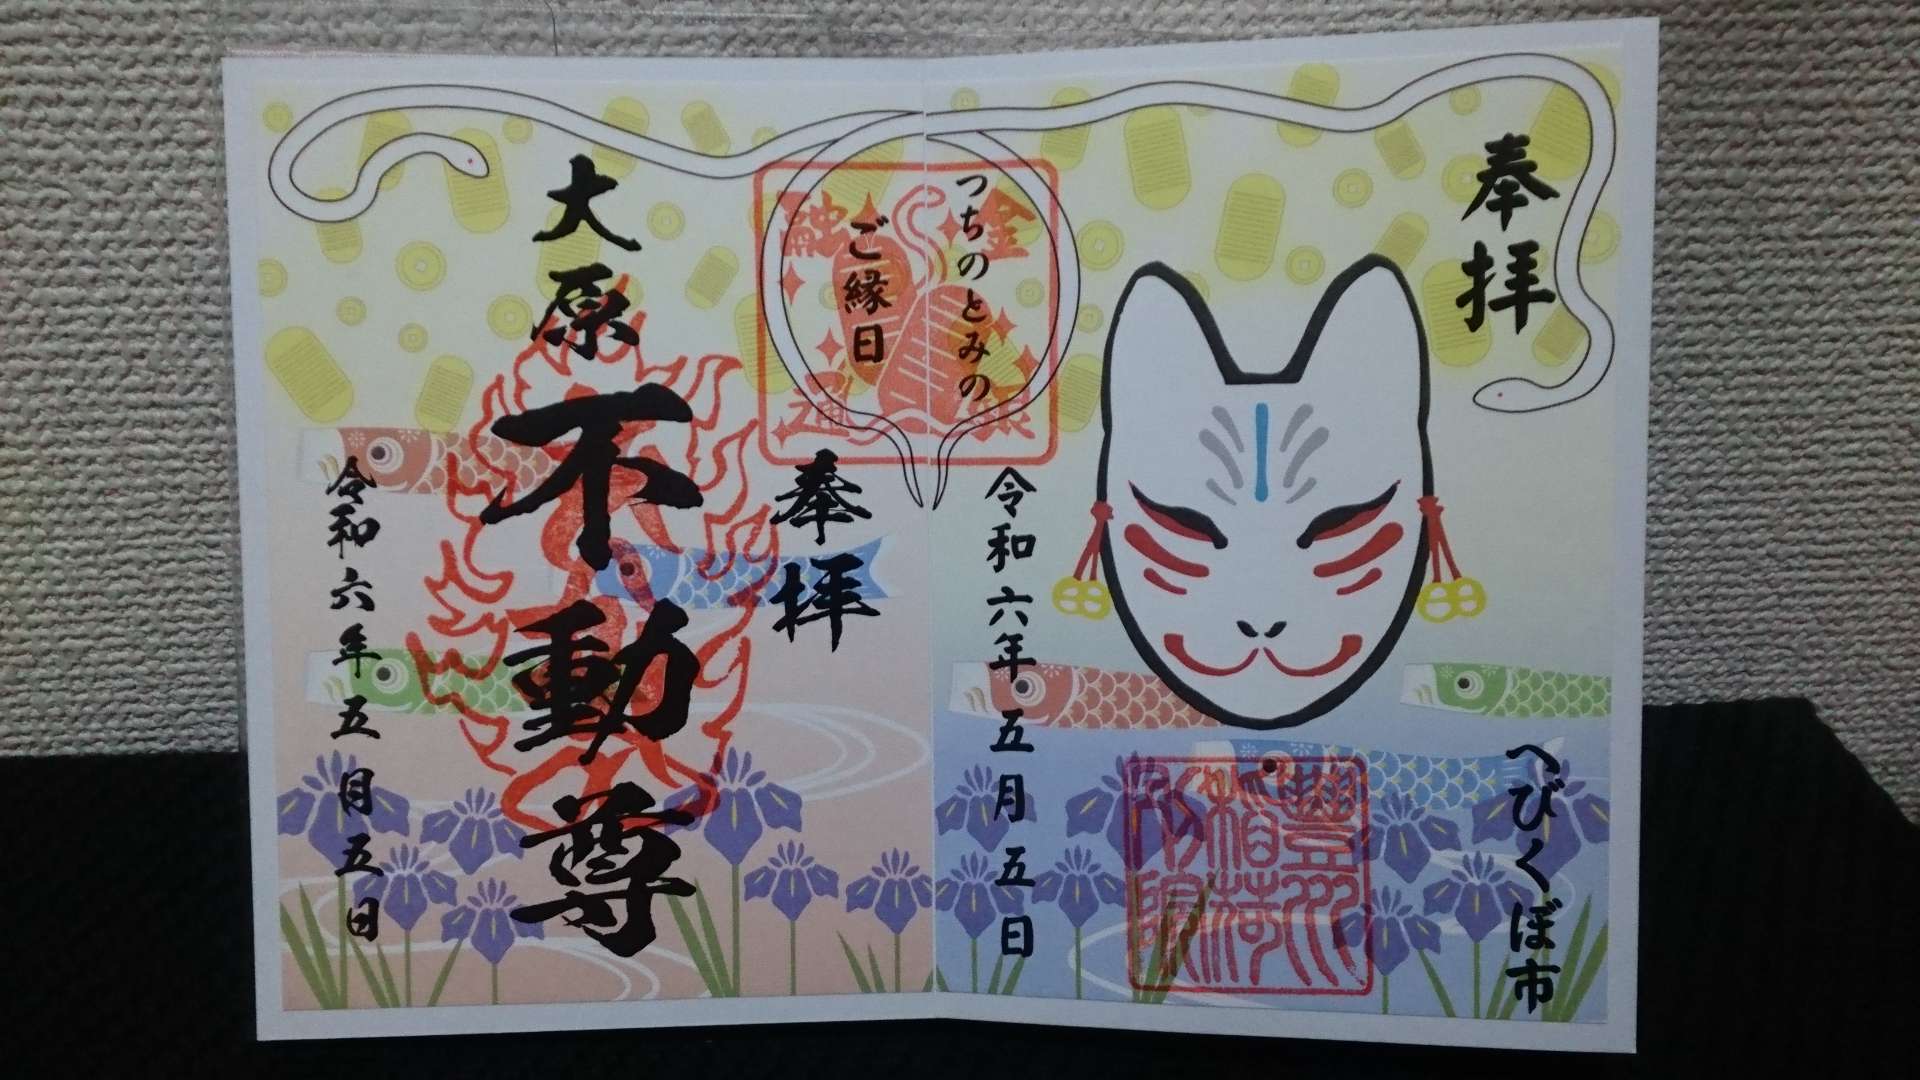 奉拝
へびくぼ市
豊川
稲荷
分院
令和六年五月五日
つちのとみの
ご縁日
金
融
通
奉拝
大原
不動尊
令和六年五月五日